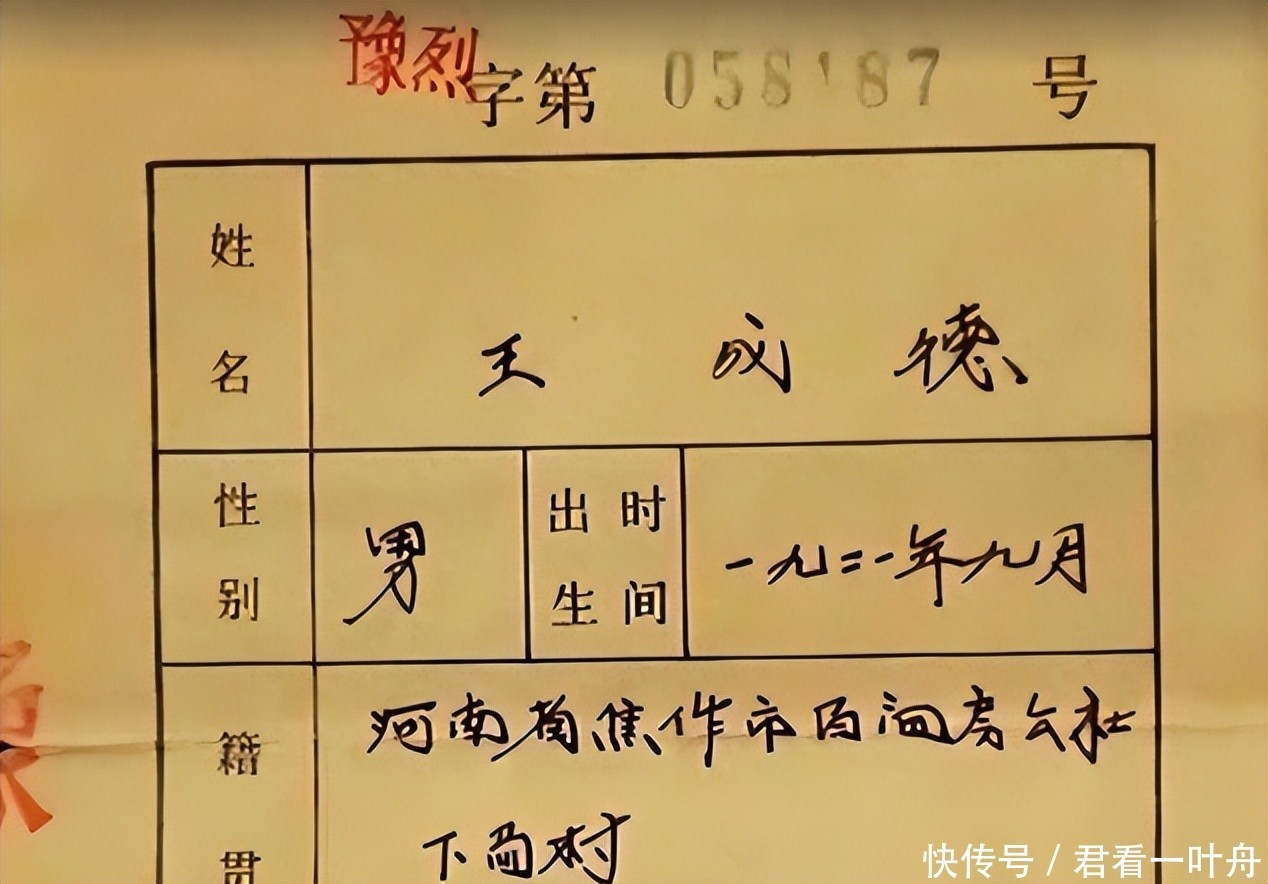 豫烈字第 058187 号
姓名 王成德
性别 男 出生时间 一九二一年九月
籍贯 河南省焦作市百泗房公社
下 村
快传号 / 君看一叶舟